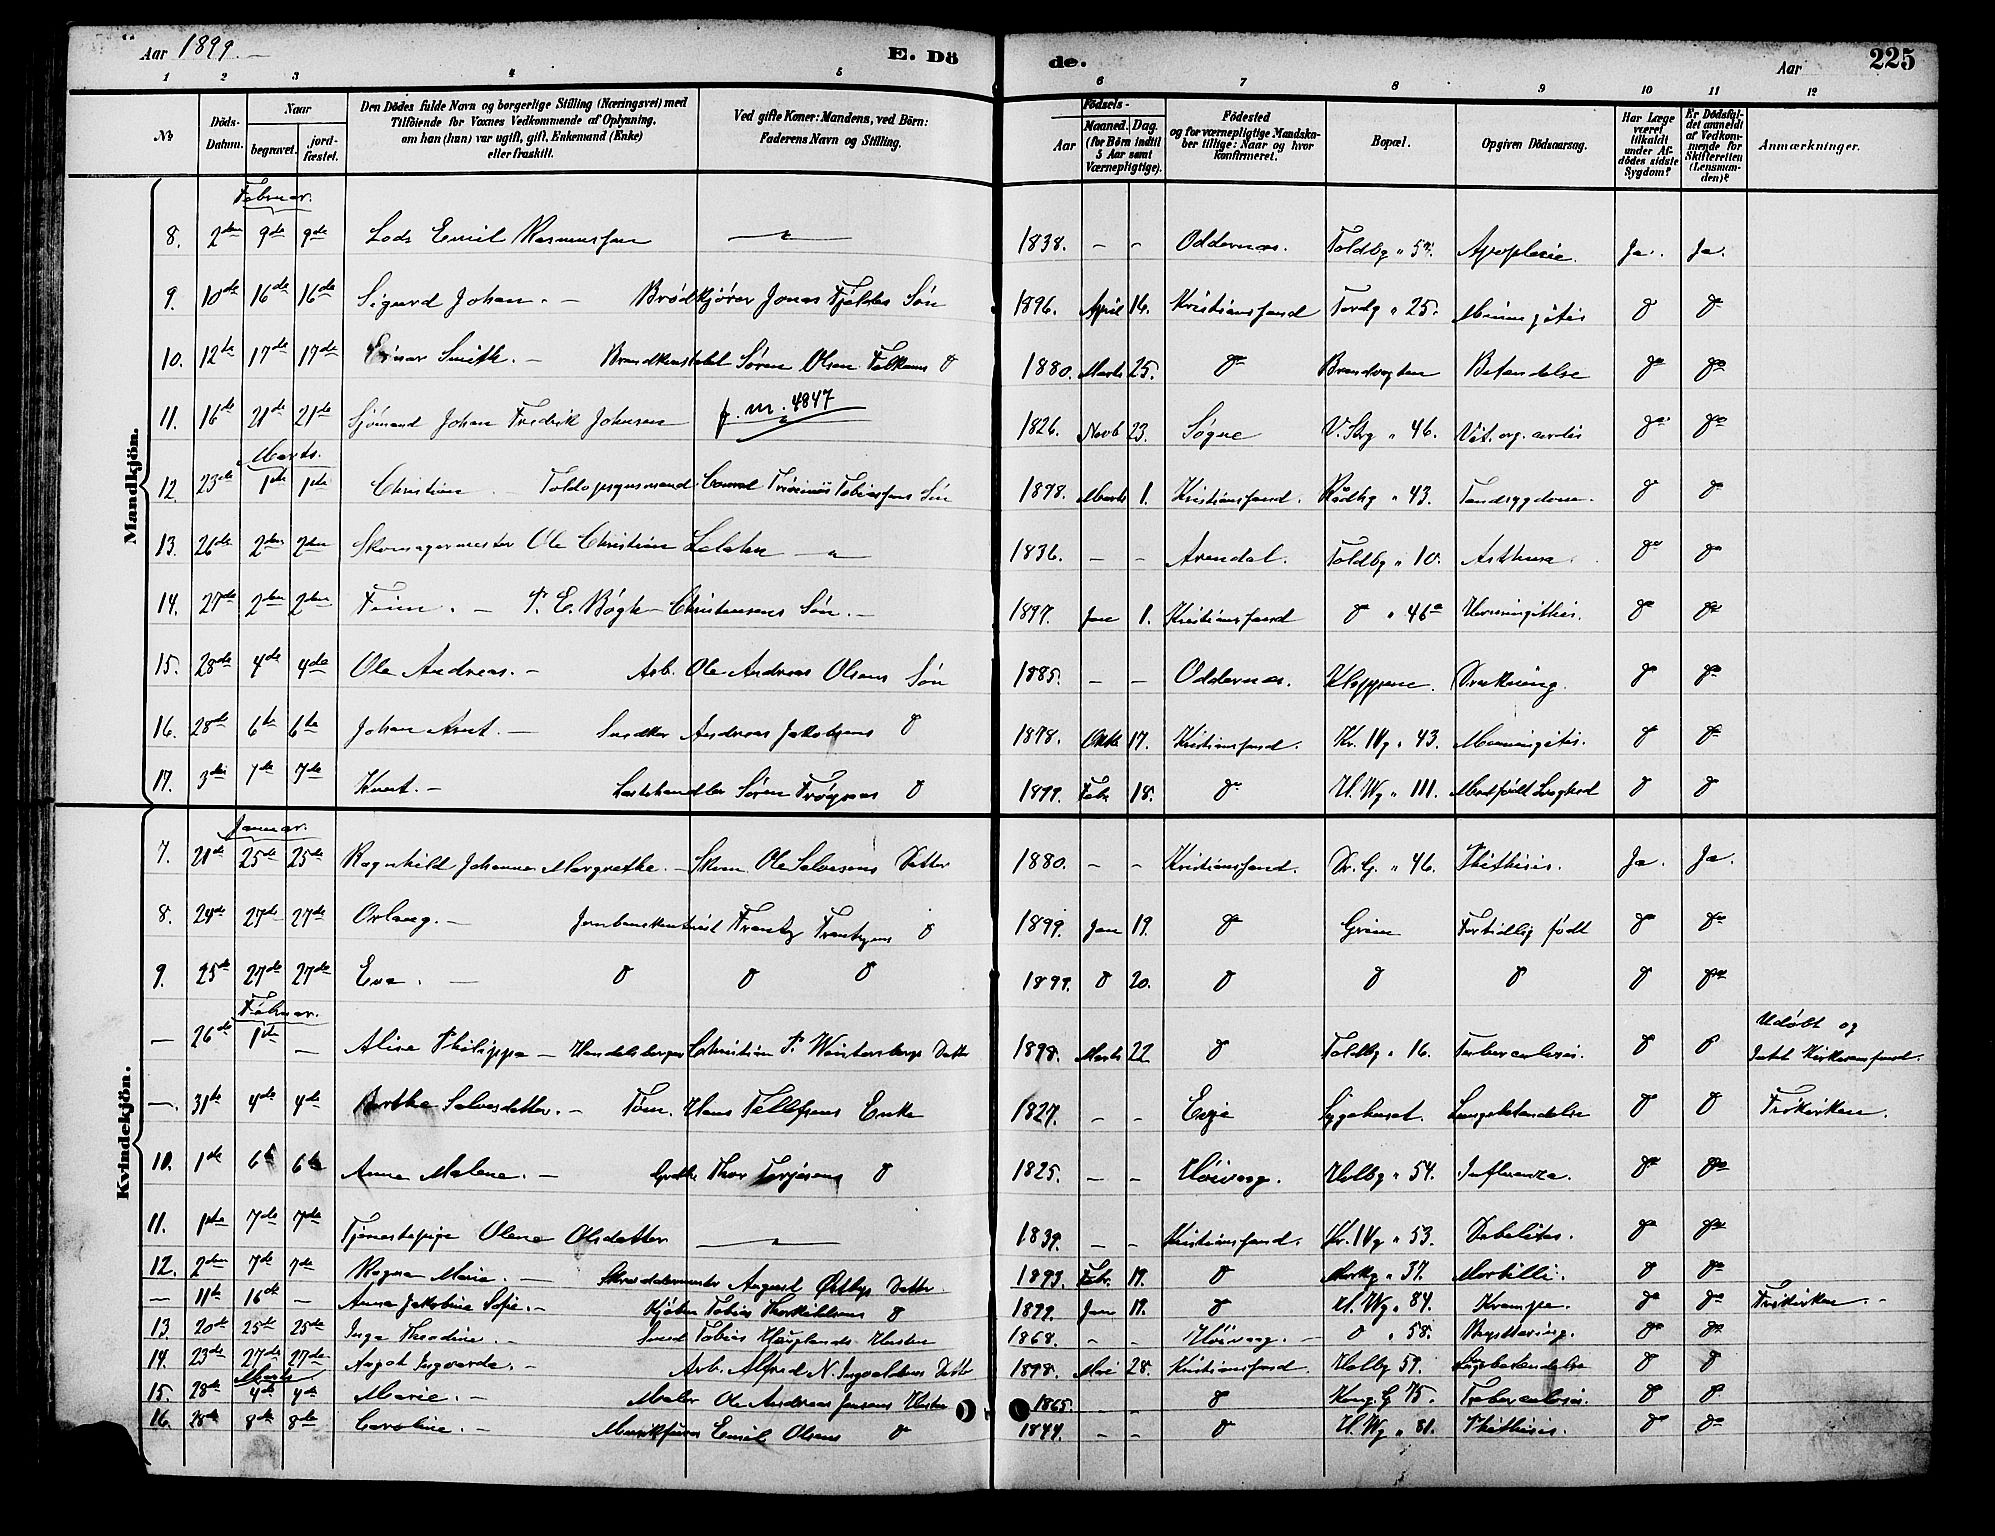 Aar 1899. E. Dö de. Aar 225
1 2 3 4 5 6 7 8 9 10 11 12
№ Döds-Datum. Naar begravet. jordfæstet. Den Dödes fulde Navn og borgerlige Stilling (Næringsvei) med Tilföiende for Voxnes Vedkommende af Oplysning, om han (hun) var ugift, gift, Enkemand (Enke) eller fraskilt. Ved gifte Koner: Mandens, ved Börn: Faderens Navn og Stilling. Födsels- Aar Maaned. Dag. (for Börn indtil 5 Aar samt Værnepligtige). Födested og for værnepligtige Mandskaber tillige: Naar og hvor konfirmeret. Bopæl. Opgiven Dödsaarsag. Har Læge været tilkaldt under Afdödes sidste Sygdom? Er Dödsfaldet anmeldt af Vedkommende for Skifteretten (Lensmanden)? Anmærkninger.
Mandkjön.
Februar.
8. 2den 9de 9de Lods Emil Rasmussen — 1838. – – Oddernes. Toldbg " 57. Apoplexie. Ja. Ja.
9. 10de 16de 16de Sigurd Johan. – Brødkjører Jonas Fjeldes Søn 1896. April 14. Kristiansand " 25. Meningitis do do
10. 12te 17de 17de Einar Smith. – Brandkonstabel Søren Olsen do 1880. Marts 25. do Brandvagten Betændelse do do
11. 16de 21de 21de Sjømand Johan Fredrik Johnsen f. m. 4847 1826. Novb 23. Søgne V. Strg " 46. Vit. org. cordis do do
Marts.
12. 23de 1ste 1ste Christian. Toldopsynsmand Tobiassens Søn 1898. Marts 1. Kristiansand. Rådhg " 43. Tandsygdom. do do
13. 26de 2den 2den Skomagermester Ole Christian — 1836. – – Arendal. Toldbg " 10. Asthma. do do
14. 27de 2den 2den Finn. – P. E. Bøgh-Christensens Søn. – 1897. Jan 1. Kristiansand do " 46a Meningitis. do do
15. 28de 4de 4de Ole Andreas. – Arb. Ole Andreas Olsens Søn 1885. – – Oddernes. Kloppene. Drukning. do do
16. 28de 6te 6te Johan Arnt. – Snedker Andreas Jakobsens do 1878. Oktb 17. Kristiansand. Kr. IVg " 43. Meningitis. do do
17. 3die 7de 7de Knut. – Søren do 1899. Febr. 18. do H. Wg " 111. Medfødt Svaghed do do
Kvindekjön.
Januar.
7. 21de 25de 25de Ragnhild Johanne Margrethe. – Skom. Ole Salvesens Datter 1880. – – Kristiansand. Dr. G. " 46. Phthisis. Ja. Ja.
8. 24de 27de 27de Orlaug. – Frantz Frantzens do 1899. Jan 19. do Grim Fortidlig født do do
9. 25de 27de 27de Eva. – do do do 1899. do 20. do do do do do
Februar.
— 26de 1ste – Alise Philippa – Handelsborger Christian P. Wintersbergs Datter 1898. Marts 22 do Toldbg " 16. Tuberculosis. do do Udøbt og
—. 31te 4de 4de Berthe Salvesdatter. – Tøm. Hans Tellefsens Enke 1827. – – Evje Sygehuset. Lungebetændelse do do Frikirken.
10. 1ste 6te 6te Anna Malene. – Thor Terjesens do 1825. – – Høivaag. Holbg " 54. Influenza. do do
11. 1ste 7de 7de Tjenestepige Olene Olsdatter — 1839. – – Kristiansand. Kr. IVg " 53. Debilitas. do do
12. 2den 7de 7de Ragna Marie. – Skræddermester August Østbys Datter. 1893. Febr. 19. do Markg " 37. Morbilli. do do
– 11te 16de – Anna Jakobine Sofie. – Kjøbm Tobias Thorkildsens do 1899. Jan 19. do H. Wg " 84. Krampe. do do Frikirken. –
13. 20de 25de 25de Inga Theodine. – Smed Tobias Hauglands Hustru 1868. – – Høivaag. – do " 58. do do
14. 23de 27de 27de Aagot Ingvarda. – Arb. Alfred N. Ingvaldsens Datter 1898. Mai 28. Kristiansand. Holbg 59. Lungebetændelse do do
Marts
15. 28de 4de 4de Marie. – Maler Ole Andreas Jensens Hustru 1865. – – do Kong. G. 75. Tuberculosis. do do
16. 28de 8de 8de Caroline. – Emil Olsens do 1844. – – do H. Wg " 81. Phthisis. do do